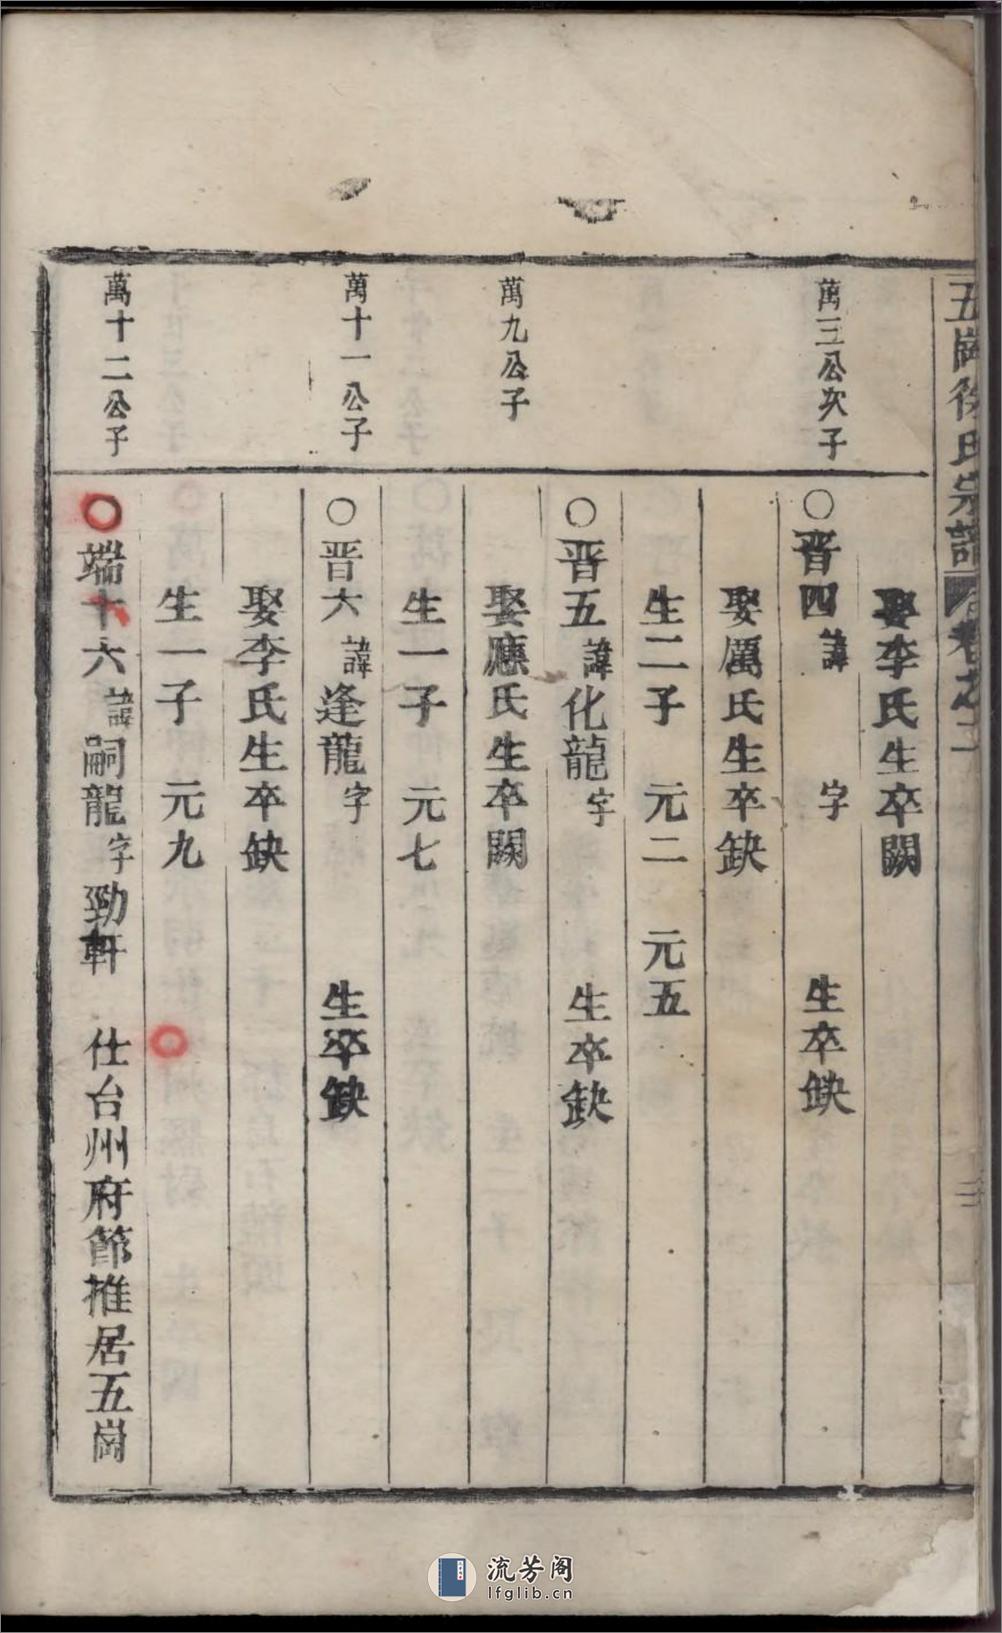 五崗徐氏宗譜 卷之二
娶李氏生卒闕
萬三公次子
○晋四 諱 字 生卒缺
娶厲氏生卒缺
生二子 元二 元五
萬九公子
○晋五 諱化龍字 生卒缺
娶應氏生卒闕
生一子 元七
萬十一公子
○晋六 諱逢龍字 生卒缺
娶李氏生卒缺
生一子 元九
萬十二公子
○端十六 諱嗣龍字勁軒 仕台州府節推居五崗
流芳阁
lfglib.cn